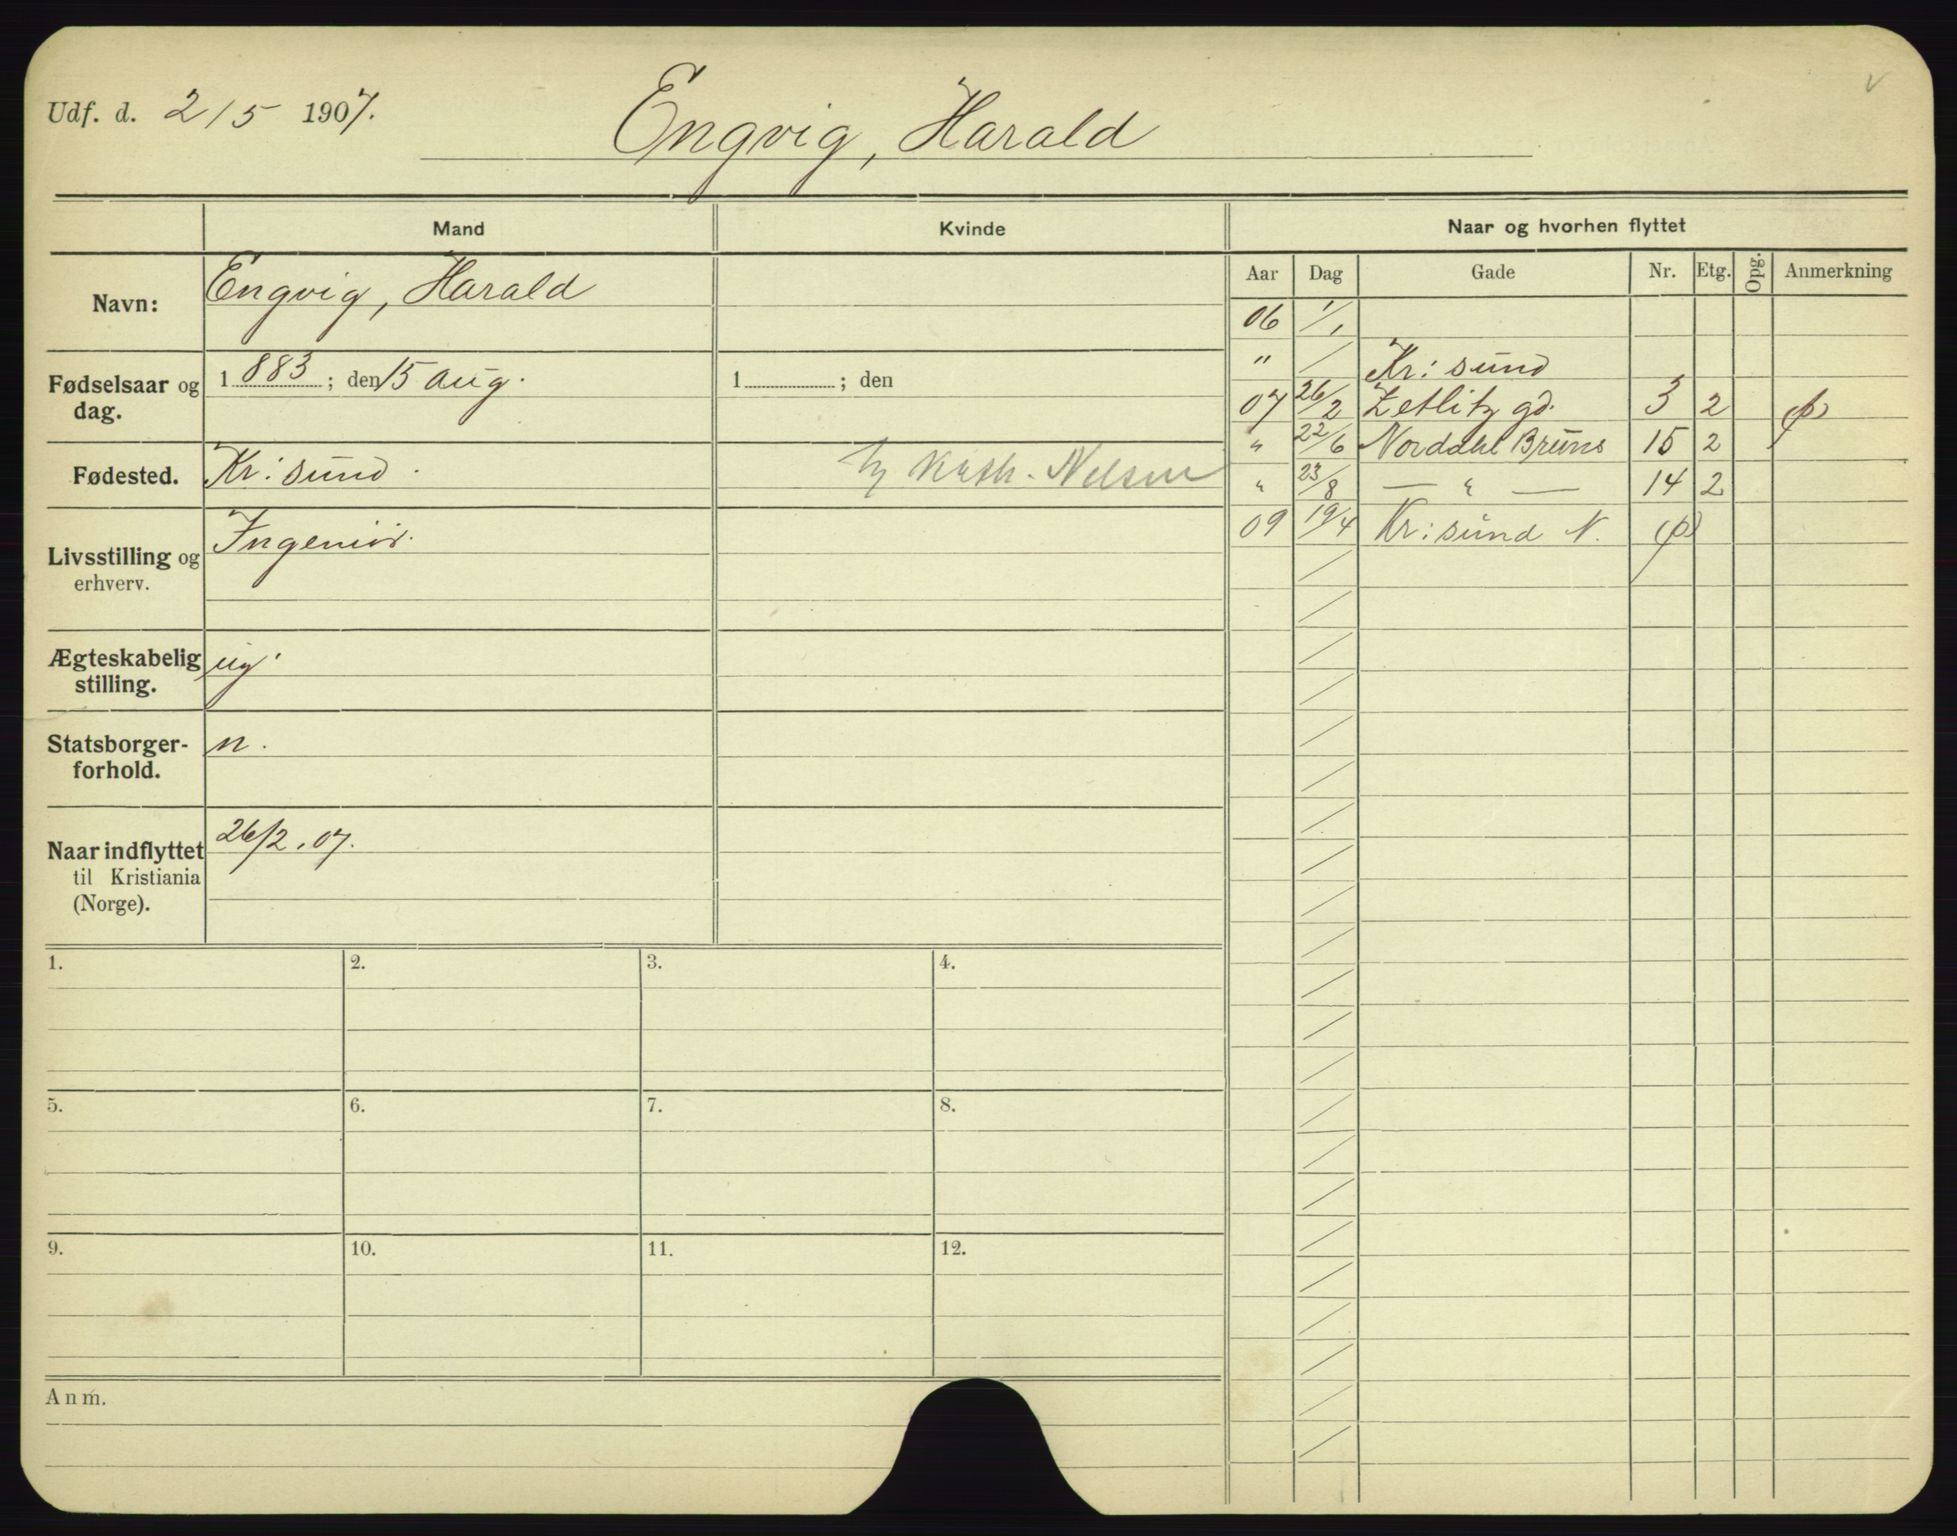 Udf. d. 2/5 1907.
Engvig, Harald
Mand Kvinde
Navn: Engvig, Harald
Fødselsaar og dag. 1883; den 15 aug. 1 ; den
Fødested. Kr: sund. Kath. Nelsen
Livsstilling og erhverv. Ingeniør.
Ægteskabelig stilling. ug
Statsborger-forhold. n.
Naar indflyttet til Kristiania (Norge). 26/2.07.
1. 2. 3. 4.
5. 6. 7. 8.
9. 10. 11. 12.
Anm.
Naar og hvorhen flyttet
Aar Dag Gade Nr. Etg. Opg. Anmerkning
06 1/1
" / Kr: sund
07 26/2 Zetlitz gd. 3 2
" 22/6 Nordahl Bruns 15 2
" 23/8 — " — 14 2
09 19/4 Kr: sund N.